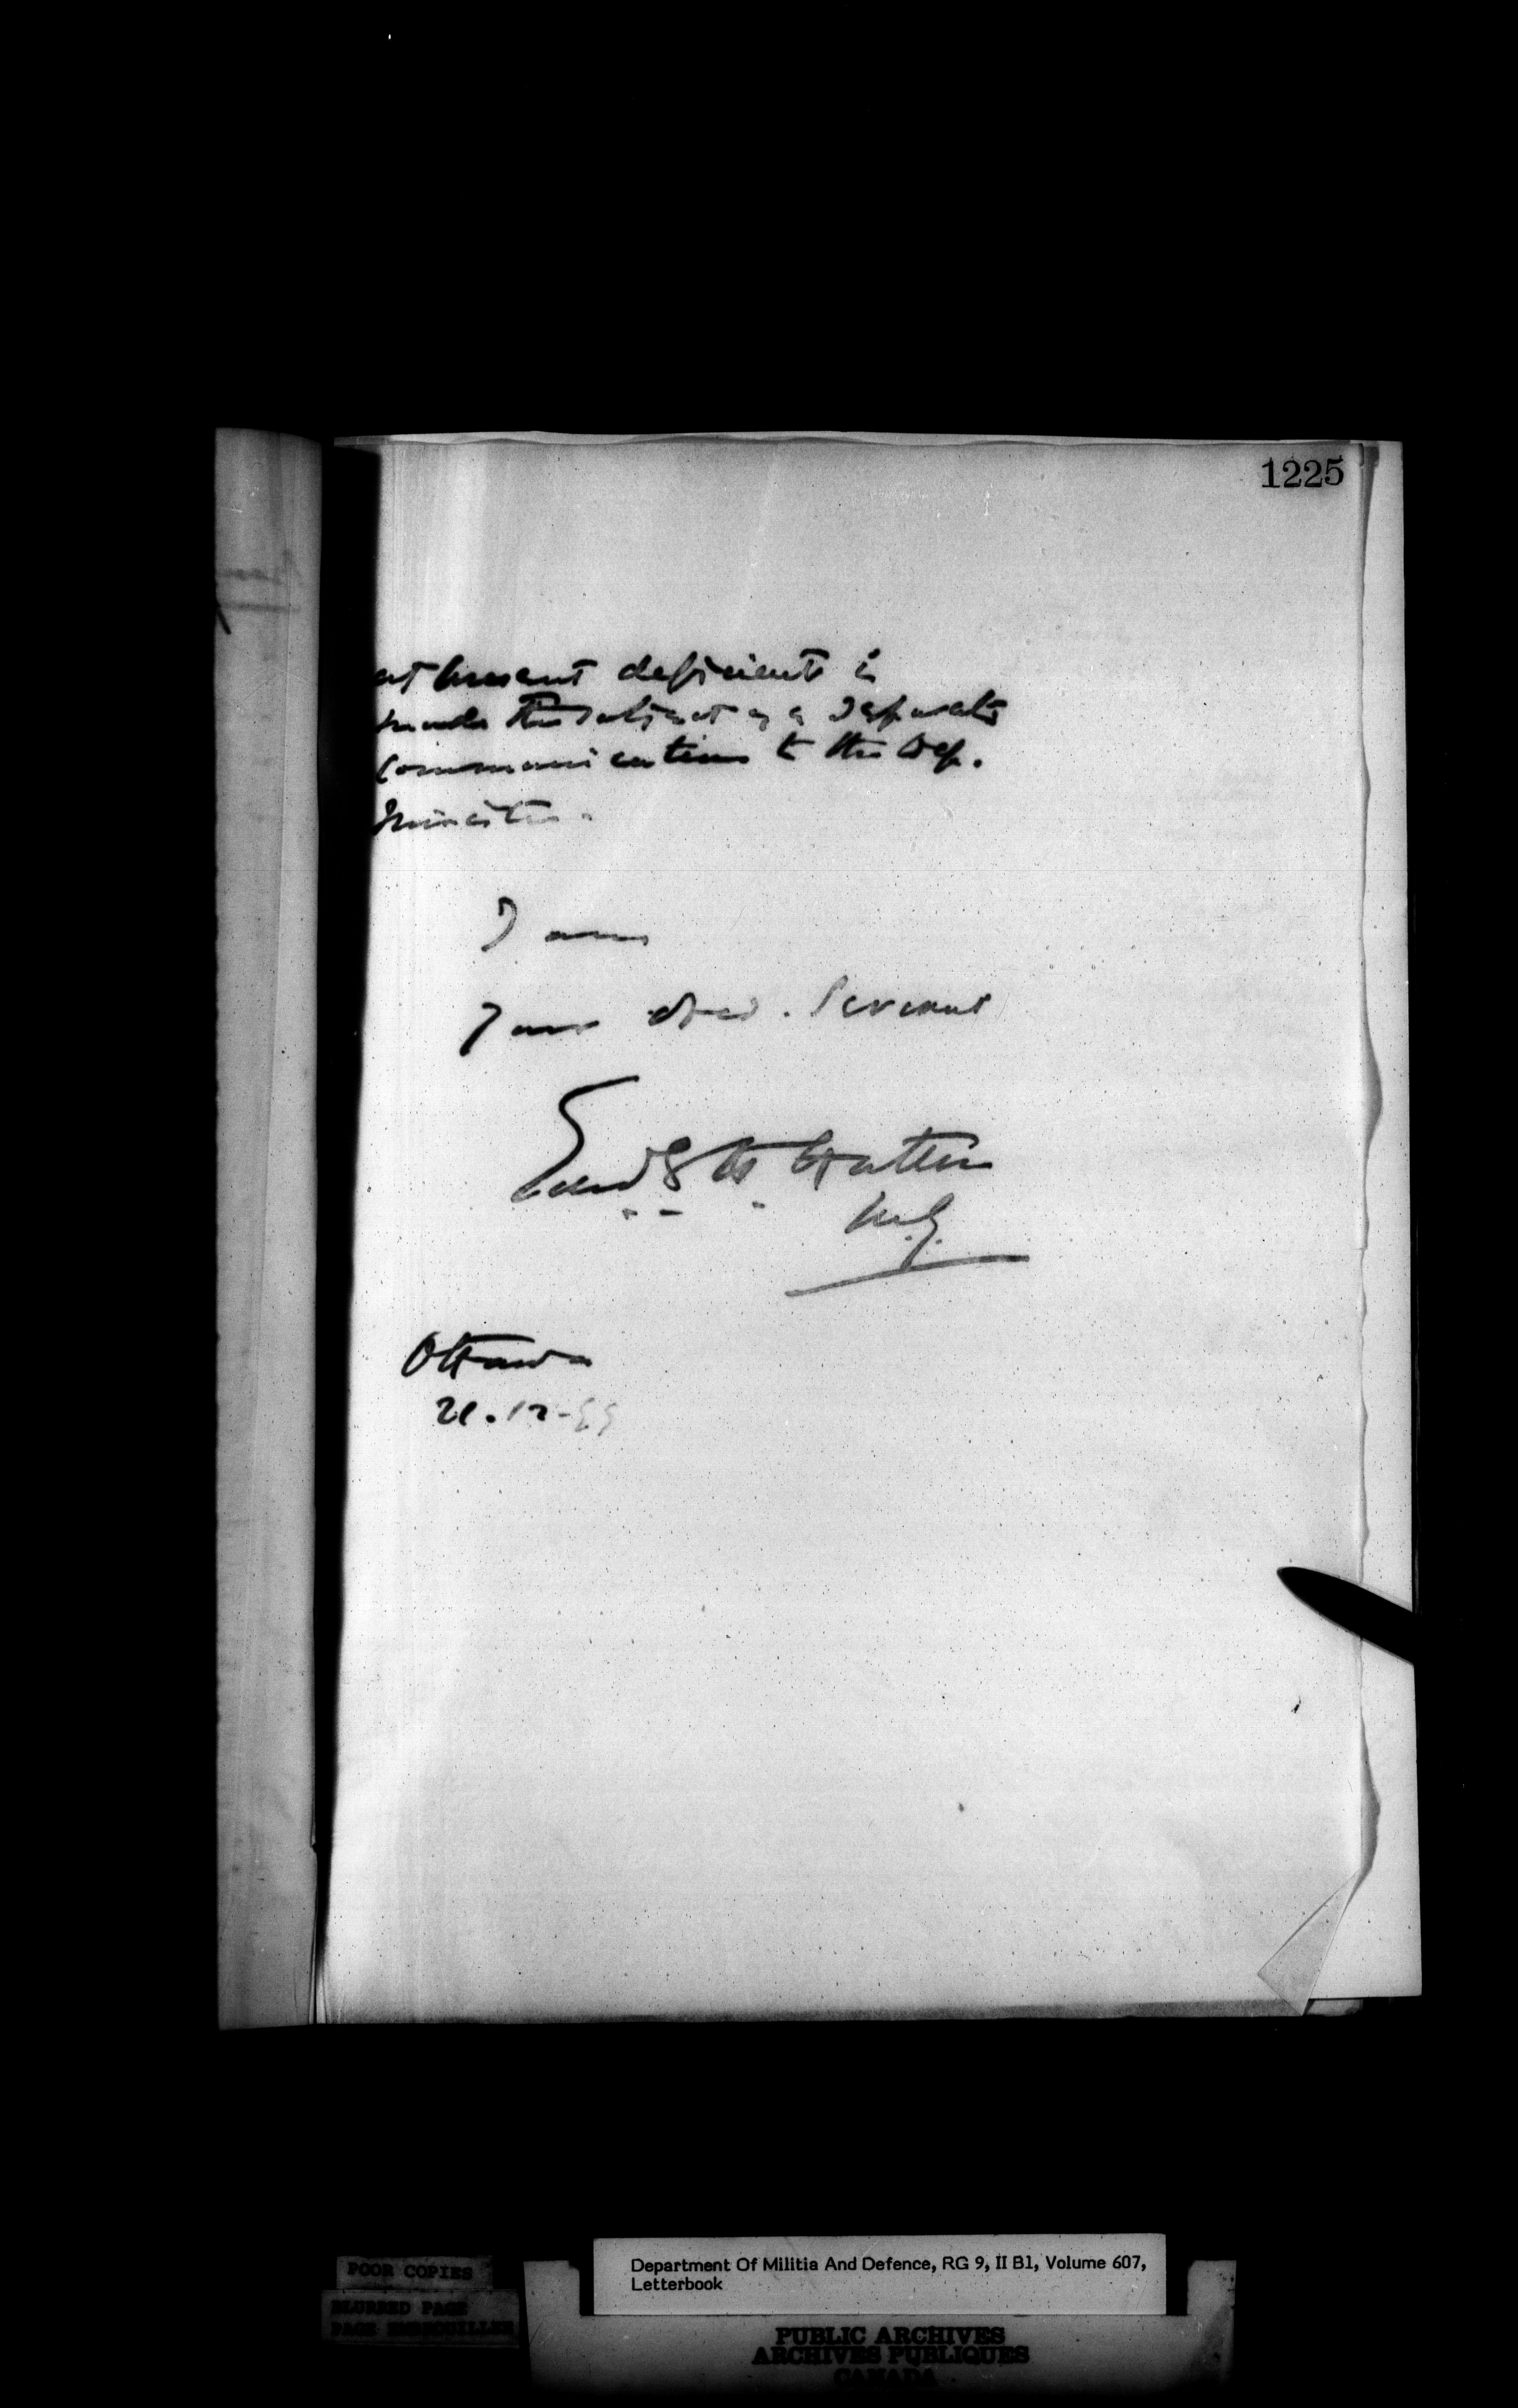 1225
at present deficient is
made the subject of a separate
communication to the Dep.
Minister.
I am
Your obed. Servant
Edwd T H Hutton
M.G.
Ottawa
21.12-99
Department Of Militia And Defence, RG 9, II B1, Volume 607,
Letterbook
POOR COPIES
BLURRED PAGE
PAGE EMBROUILLEE
PUBLIC ARCHIVES
ARCHIVES PUBLIQUES
CANADA